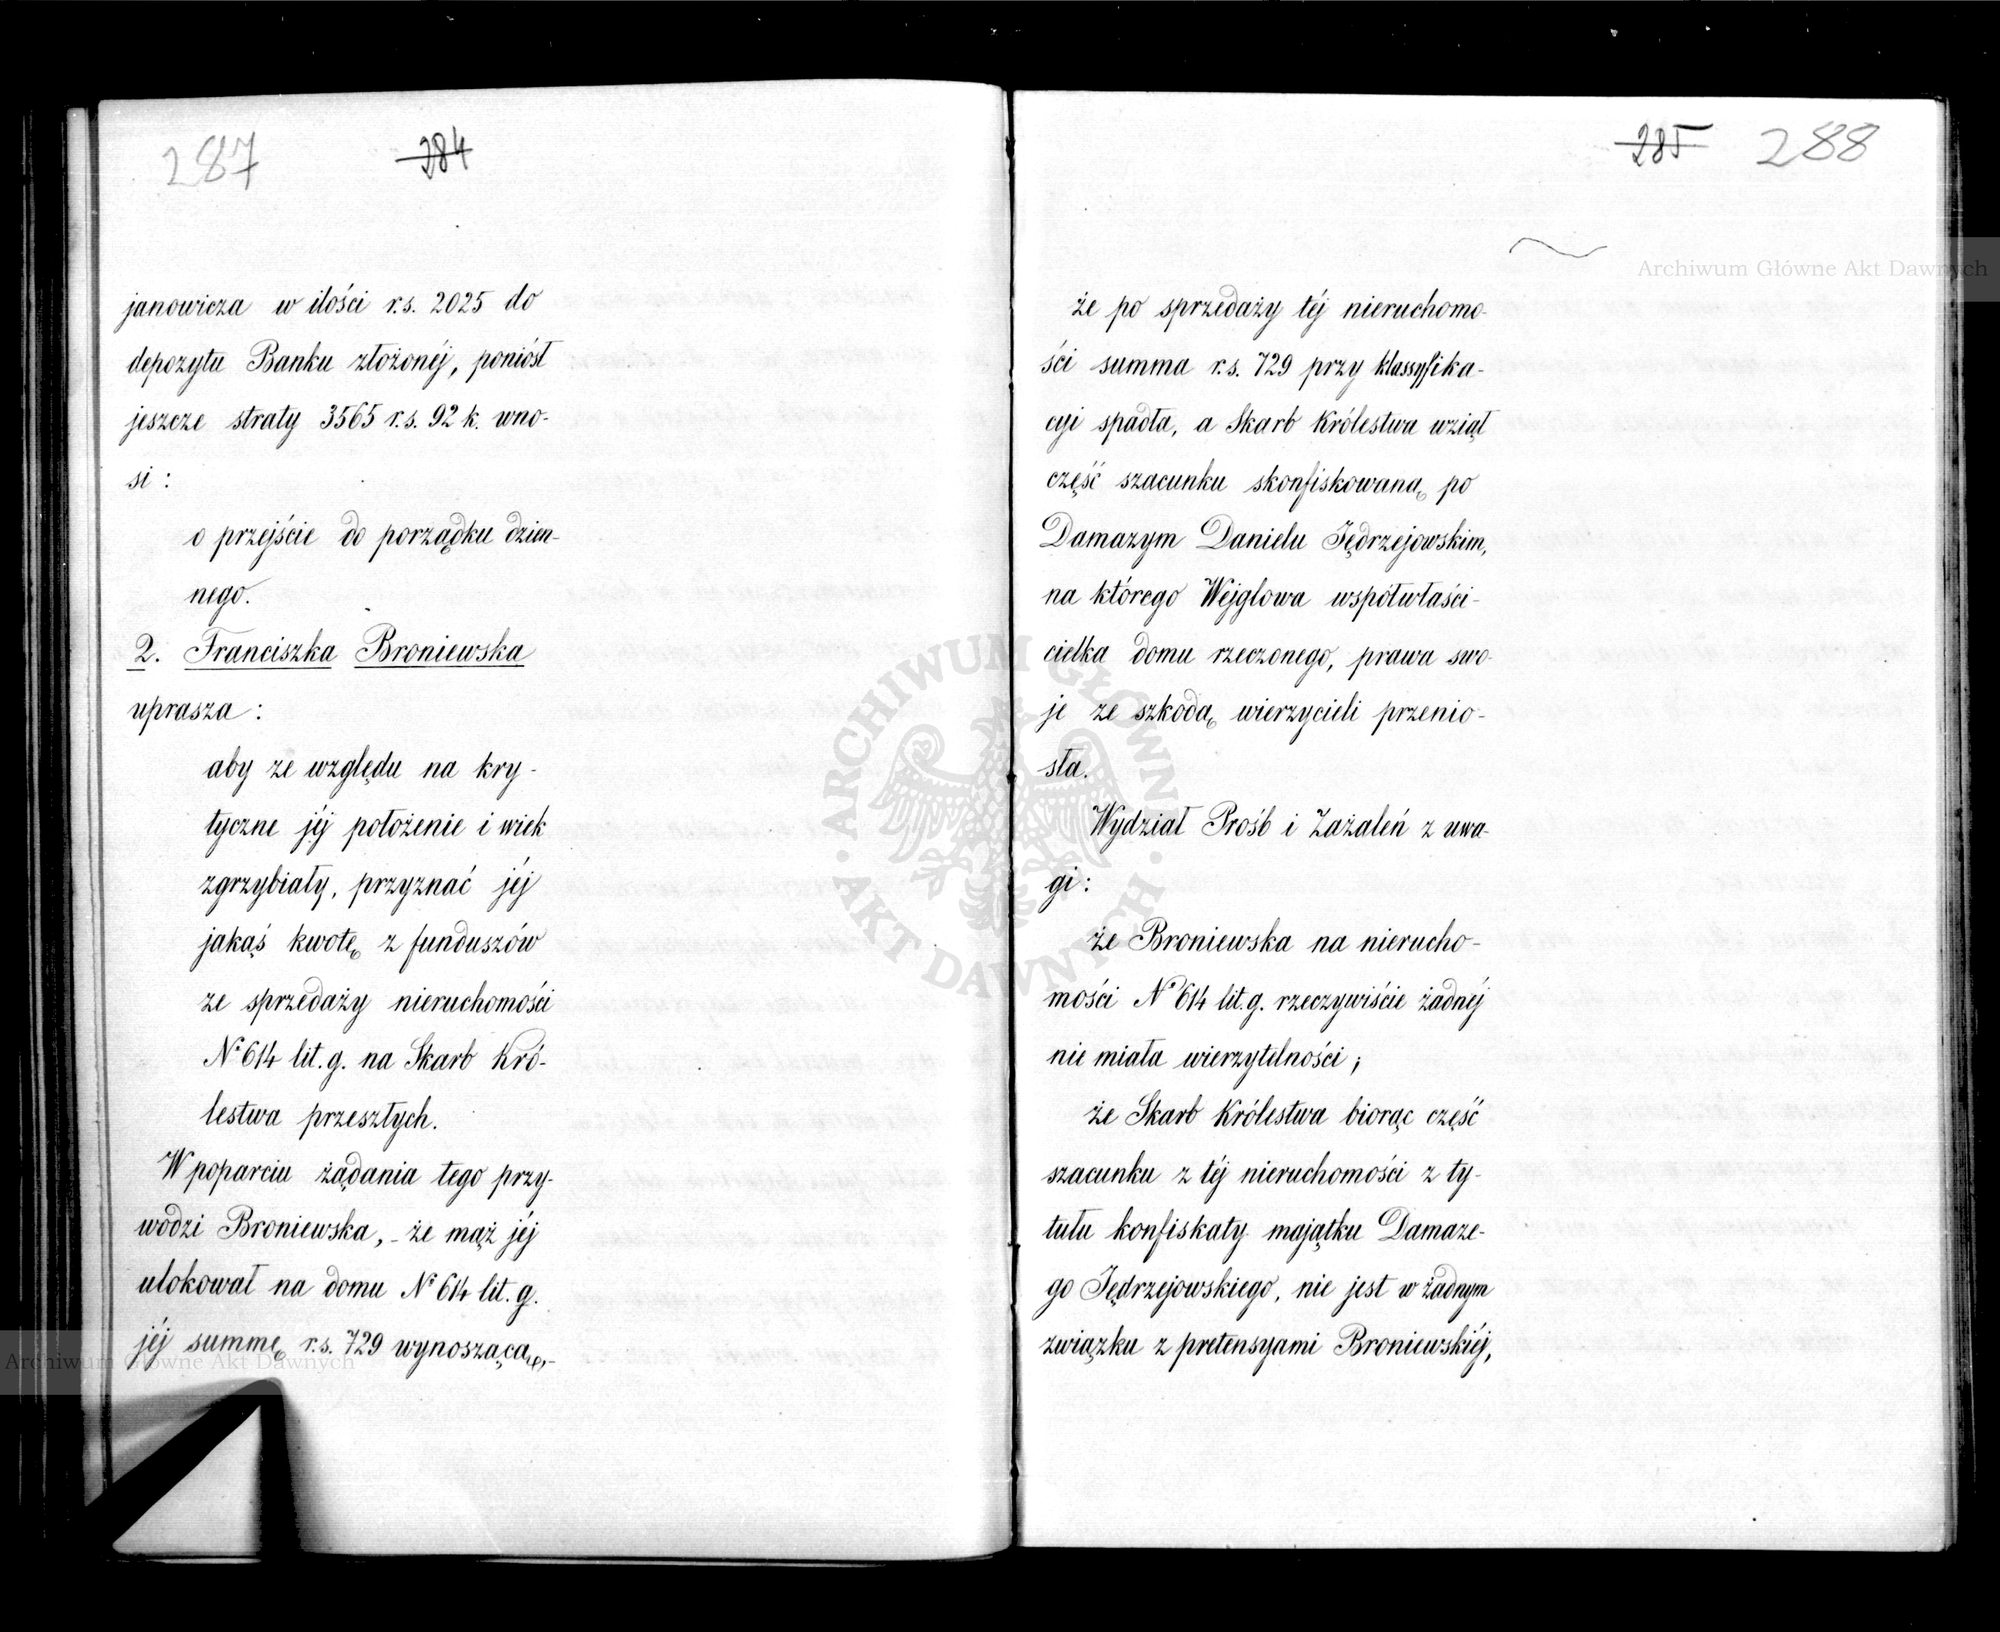 287 284
janowicza w ilości r.s. 2025 do
depozytu Banku złożonéj, poniósł
jeszcze straty 3565 r.s. 92 k. wno-
si:
o przejście do porządku dzien-
nego.
2. Franciszka Broniewska
uprasza:
aby ze względu na kry-
tyczne jéj położenie i wiek
zgrzybiały, przyznać jéj
jakąś kwotę z funduszów
ze sprzedaży nieruchomości
No 614 lit. g. na Skarb Kró-
lestwa przeszłych.
W poparciu żądania tego przy-
wodzi Broniewska, - że mąż jéj
ulokował na domu No 614 lit. g.
jéj summę r.s. 729 wynoszącą, -
285 288
że po sprzedaży téj nieruchomo-
ści summa r.s. 729 przy klassyfika-
cyi spadła, a Skarb Królestwa wziął
część szacunku skonfiskowaną po
Damazym Danielu Jędrzejowskim,
na którego Wejglowa współwłaści-
cielka domu rzeczonego, prawa swo-
je ze szkodą wierzycieli przenio-
sła.
Wydział Próśb i Zażaleń z uwa-
gi:
że Broniewska na nierucho-
mości No 614 lit. g. rzeczywiście żadnéj
nie miała wierzytelności;
że Skarb Królestwa biorąc część
szacunku z téj nieruchomości z ty-
tułu konfiskaty majątku Damaze-
go Jędrzejowskiego, nie jest w żadnym
związku z pretensyami Broniewskiéj,
Archiwum Główne Akt Dawnych
ARCHIWUM GŁÓWNE AKT DAWNYCH
Archiwum Główne Akt Dawnych